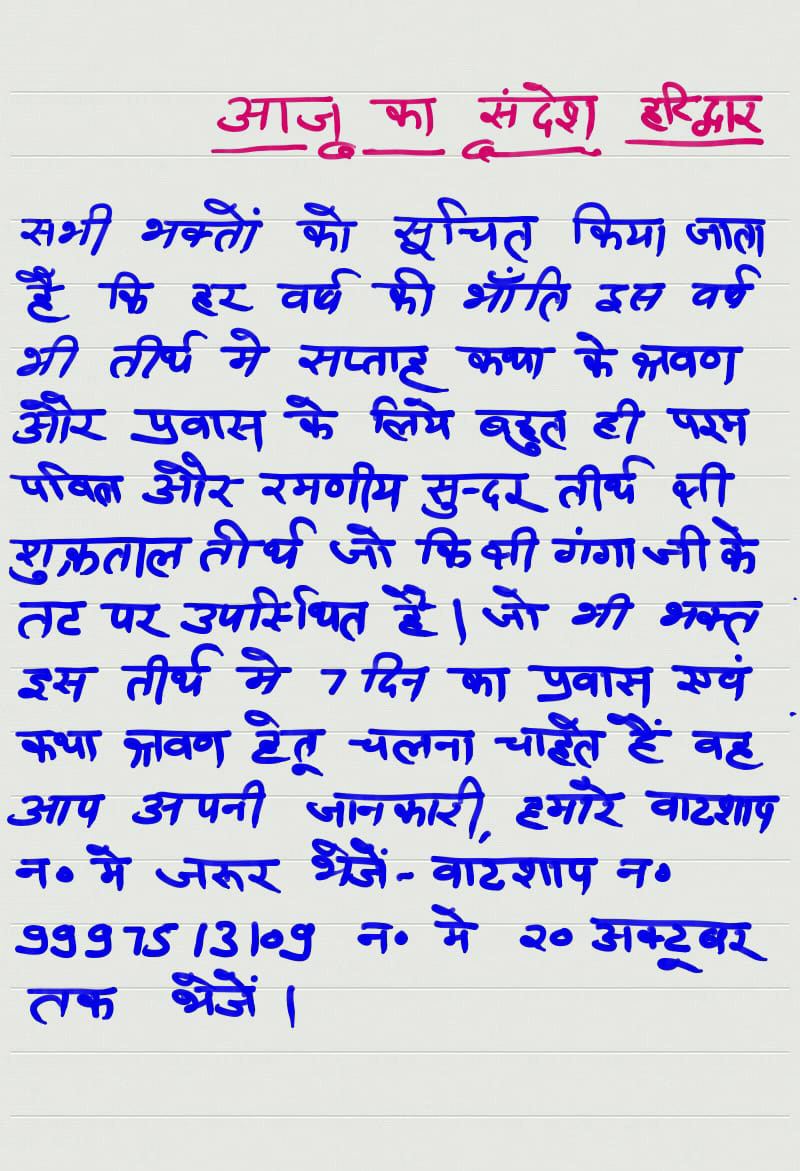 आज का संदेश हरिद्वार
सभी भक्तों को सूचित किया जाता
है कि हर वर्ष की भाँति इस वर्ष
भी तीर्थ मे सप्ताह कथा के श्रवण
और प्रवास के लिये बहुत ही परम
पवित्र और रमणीय सुन्दर तीर्थ श्री
शुक्रताल तीर्थ जो कि श्री गंगा जी के
तट पर उपस्थित है। जो भी भक्त
इस तीर्थ मे 7 दिन का प्रवास एवं
कथा श्रवण हेतू चलना चाहते हैं वह
आप अपनी जानकारी, हमारे वाटशाप
न० मे जरूर भेजें - वाटशाप न०
9997513109 न० मे २० अक्टूबर
तक भेजें।